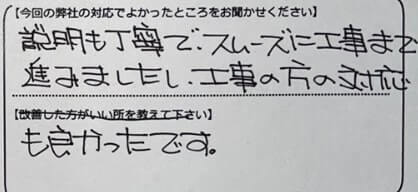 【今回の弊社の対応でよかったところをお聞かせください】
説明も丁寧で、スムーズに工事まで
進みましたし、工事の方の対応
【改善した方がいい所を教えて下さい】
も良かったです。